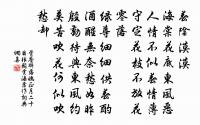 春陰漠漠
海棠花底東風惡
人情不似春情薄
守定花枝不放花
零落
綠尊細細供春酌
酒醒無奈愁如昨
殷勤待與東風約
莫苦吹花何似吹
愁卻
管鑒醉落魄正月二十
日張園賞海棠作詞典
網